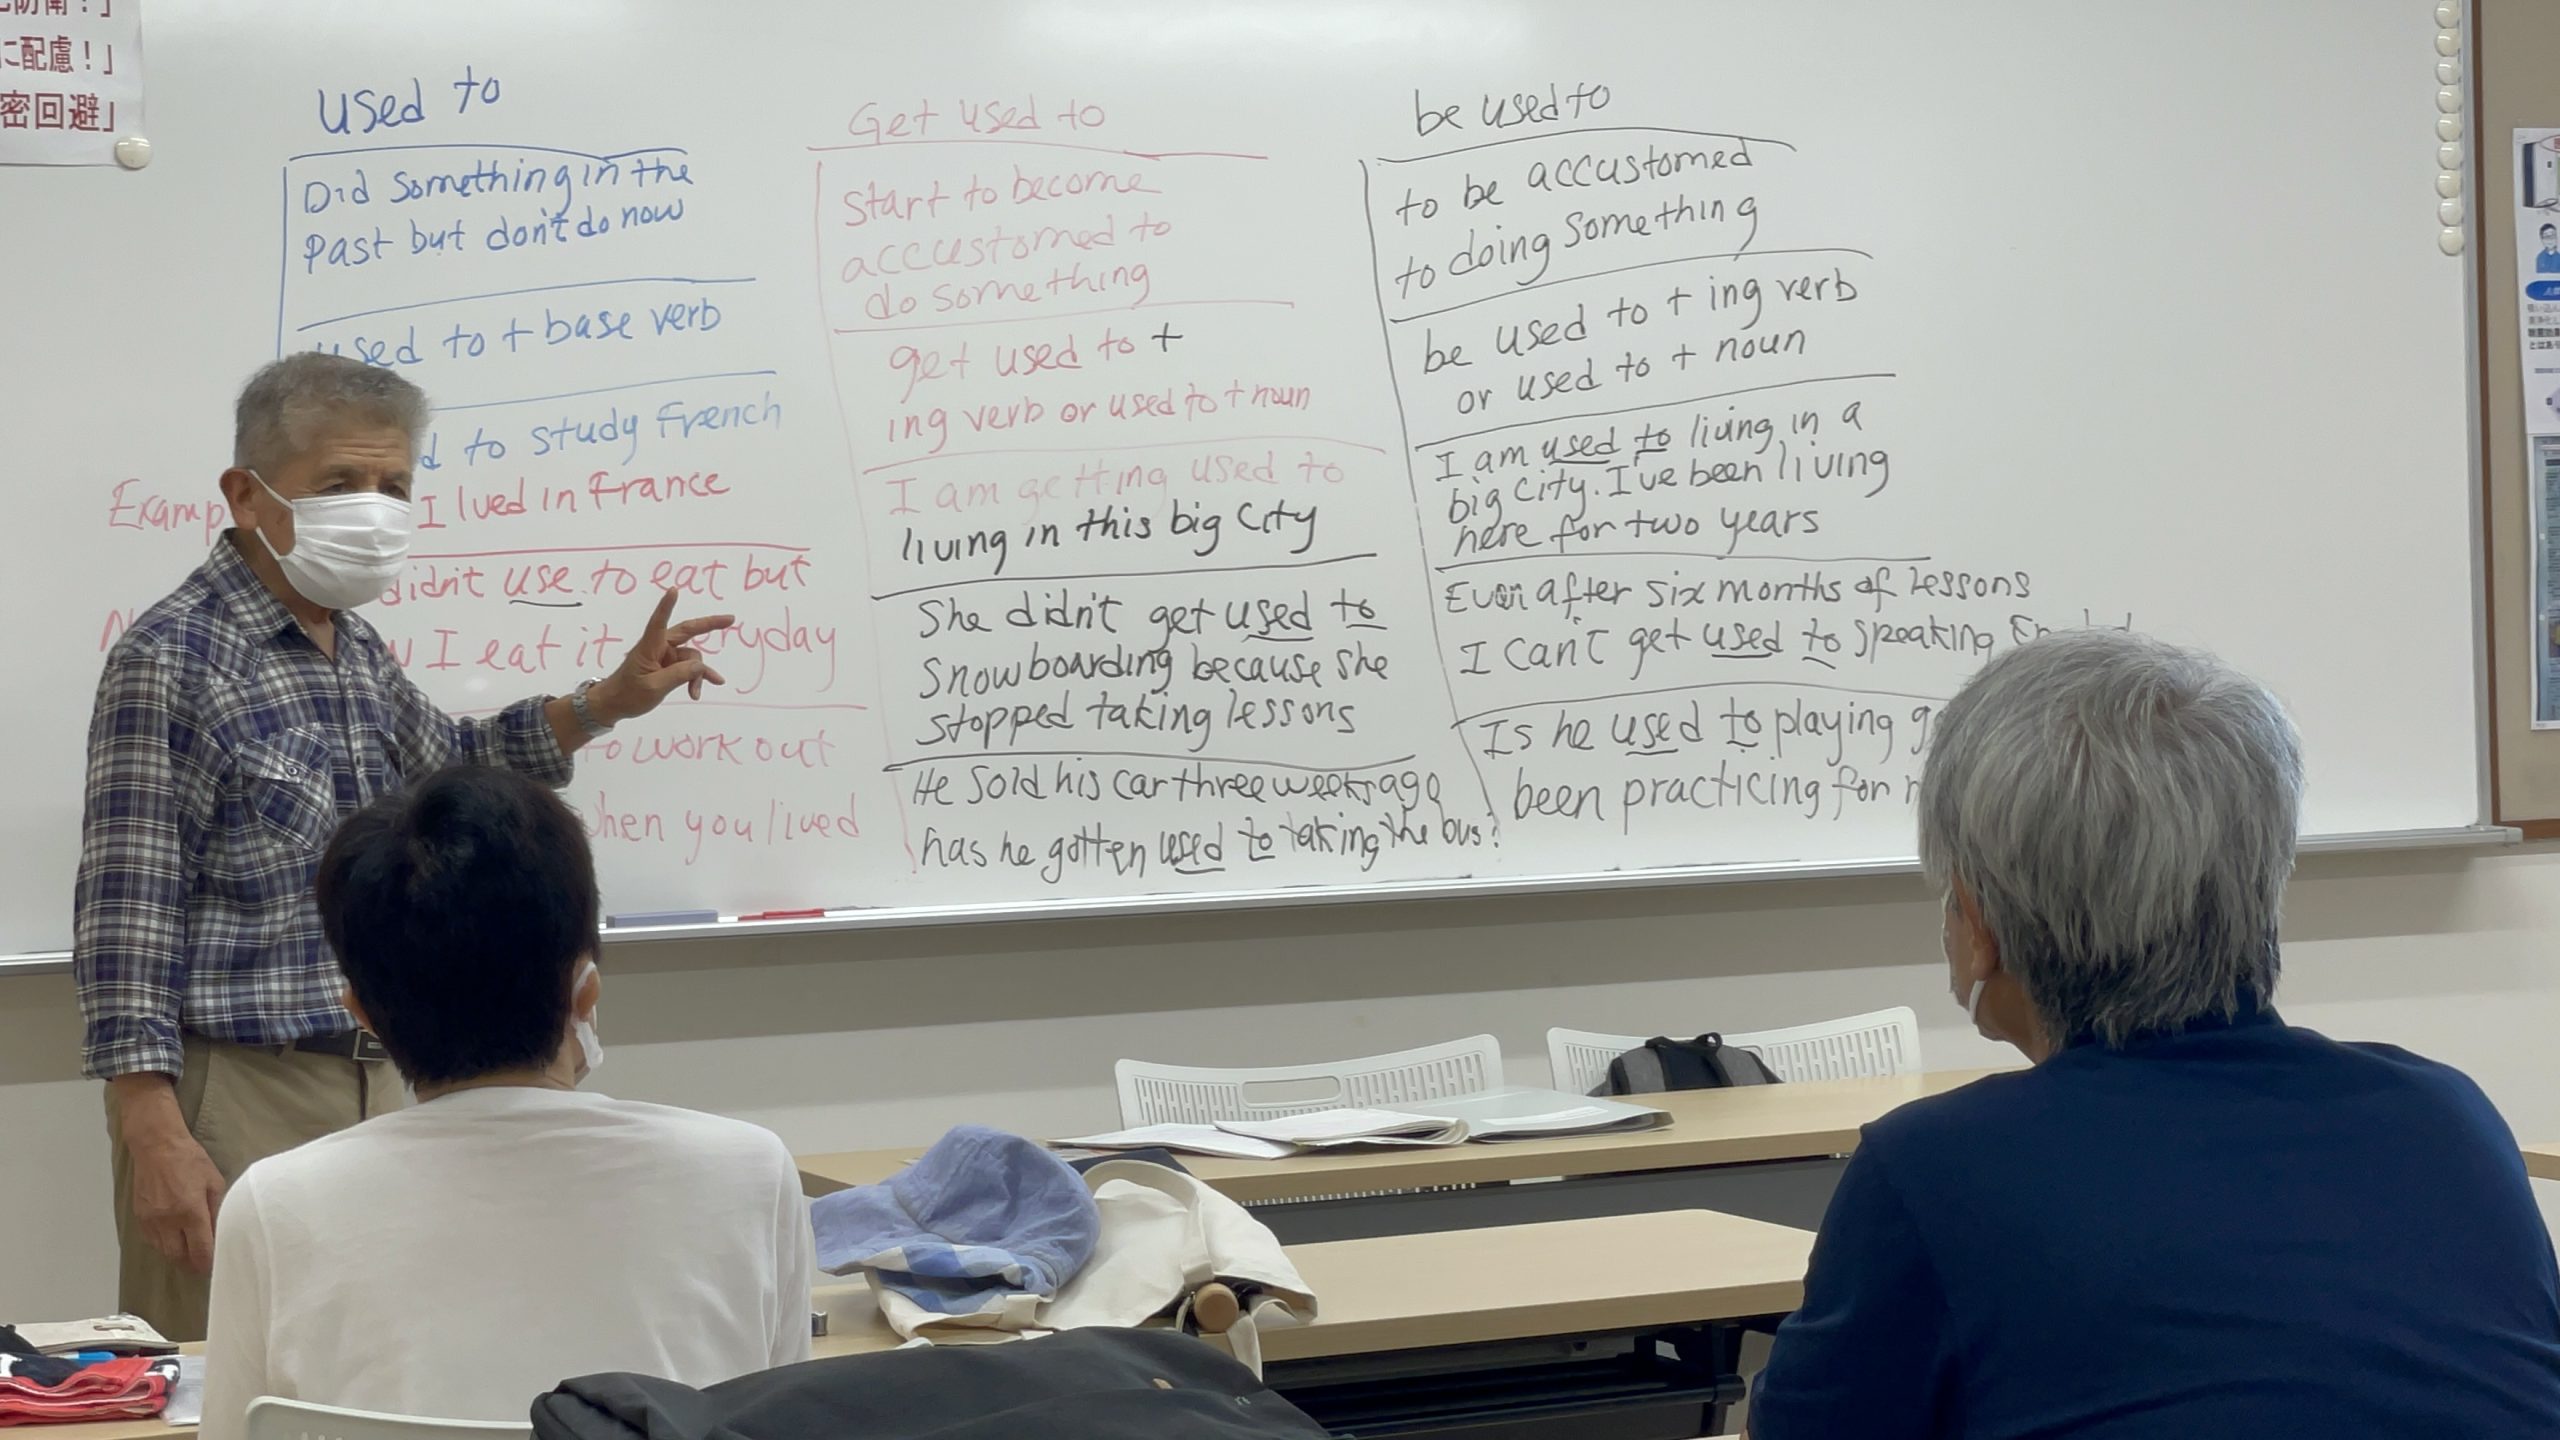 に配慮！」
密回避」
used to
Did something in the
Past but don't do now
used to + base verb
to study French
Examp
I lved in France
didn't use to eat but
I eat it everyday
to work out
when you lived
Get used to
start to become
accustomed to
do something
get used to +
ing verb or used to + noun
I am getting used to
living in this big city
She didn't get used to
snowboarding because she
stopped taking lessons
He sold his car three weeks ago
has he gotten used to taking the bus?
be used to
to be accustomed
to doing something
be used to + ing verb
or used to + noun
I am used to living in a
big city. I've been living
here for two years
Even after six months of lessons
I can't get used to speaking
Is he used to playing
been practicing for